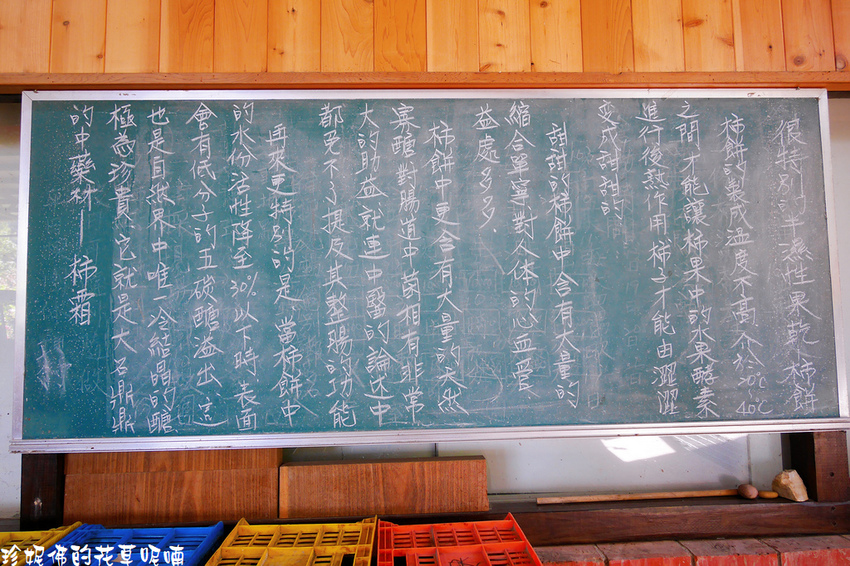 很特別的半濕性果乾-柿餅
柿餅的製成溫度不高介於30℃~40℃
之間才能讓柿果中的水果酵素
進行後熱作用柿子才能由澀澀
變成甜甜的
甜甜的柿餅中含有大量的
縮合單寧對人体的心血管
益處多多.
柿餅中更含有大量的天然
寡醣對腸道中菌相有非常
大的助益就連中醫的論述中
都免不了提及其整腸的功能
再來更特別的是 當柿餅中
的水份活性降至30%以下時 表面
會有低分子的五碳醣溢出.這
也是自然界中唯一冷結晶的醣
極為珍貴.它就是大名鼎鼎
的中藥材—柿霜
珍妮佛的花草呢喃